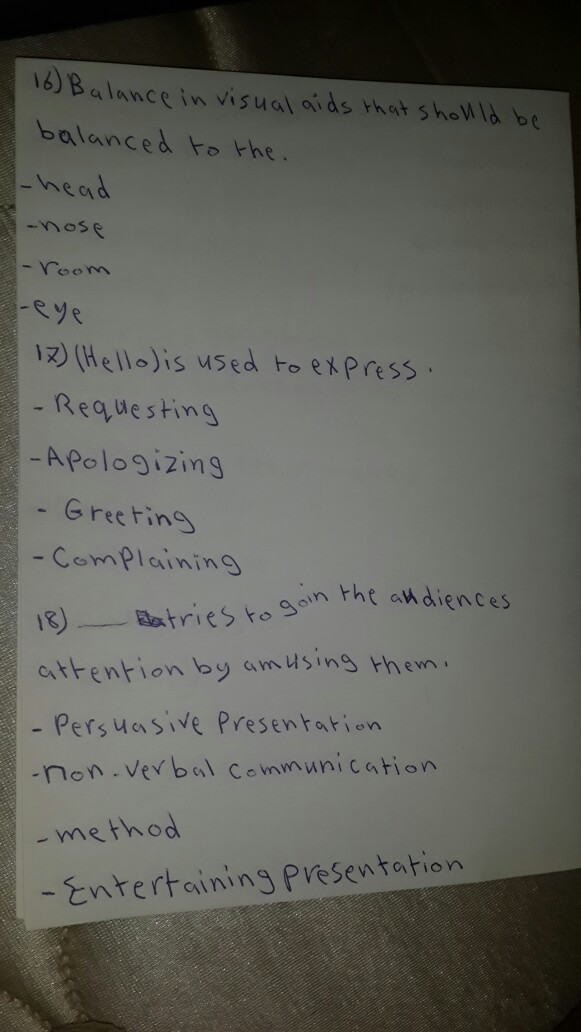 16) Balance in visual aids that should be
balanced to the.
- head
- nose
- room
- eye
17) (Hello) is used to express.
- Requesting
- Apologizing
- Greeting
- Complaining
18) ___ tries to gain the audiences
attention by amusing them.
- Persuasive Presentation
- non-verbal communication
- method
- Entertaining presentation